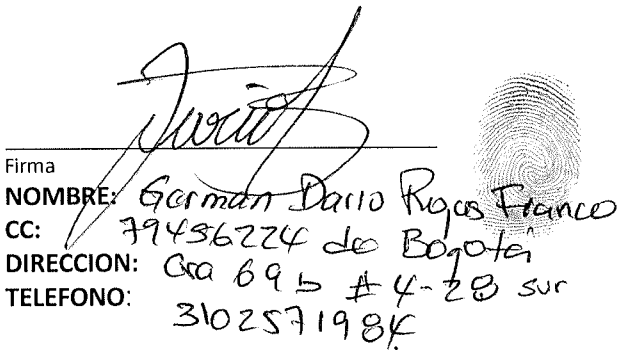 Firma
NOMBRE: German Dario Rojas Franco
CC: 79456224 de Bogotá
DIRECCION: Cra 69 b # 4-28 sur
TELEFONO: 3102571984